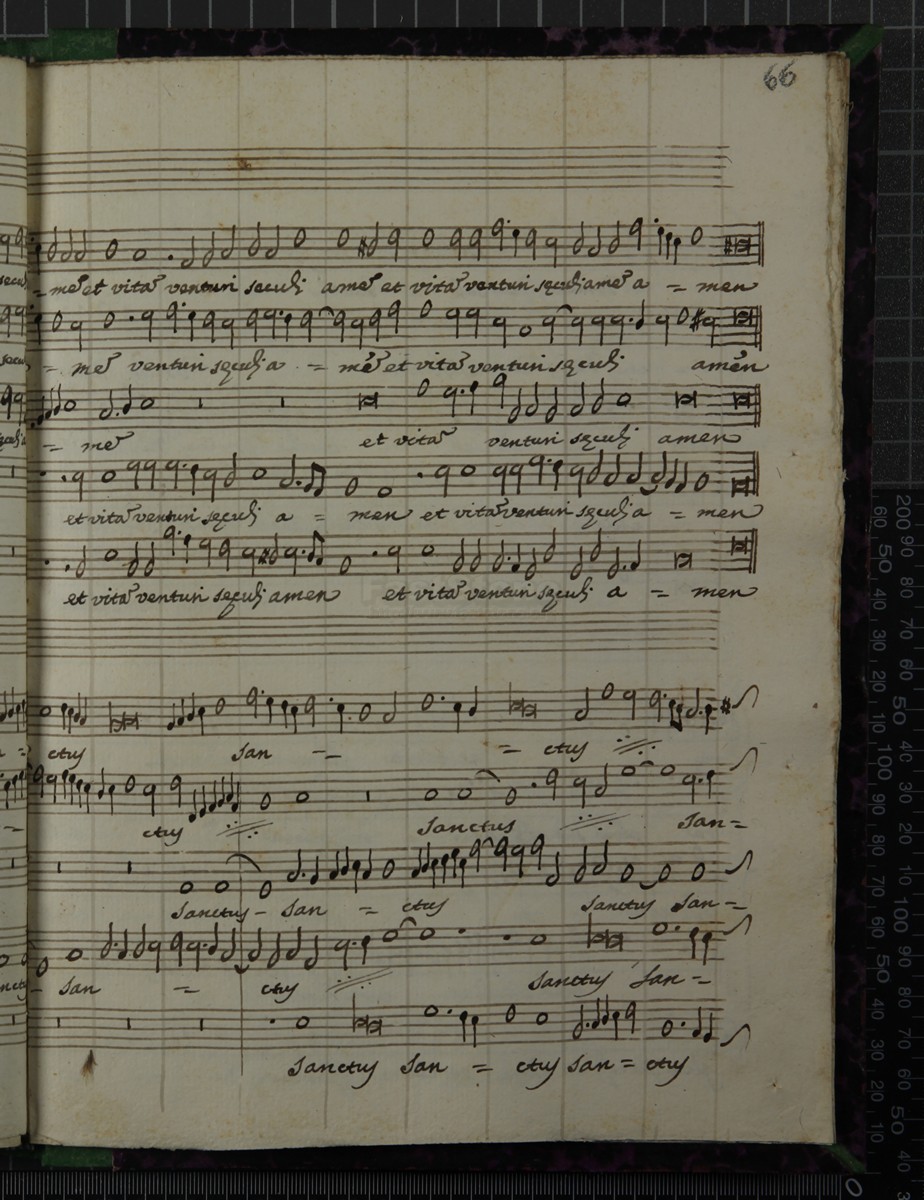 66
= me̅ et vita̅ venturi seculi ame̅ et vita̅ venturi sęculi ame̅ a = men
= me̅ venturi sęculi a = me̅ et vita̅ venturi sęculi amen
= me̅ et vita̅ venturi sęculi amen
et vita̅ venturi sęculi a = men et vita̅ venturi sęculi a = men
et vita̅ venturi sęculi amen et vita̅ venturi sęculi a = men
= ctus san - = ctus
- ctus Sanctus San=
Sanctus - San = ctus Sanctus San=
San = ctus Sanctus San=
Sanctus San = ctus San = ctus